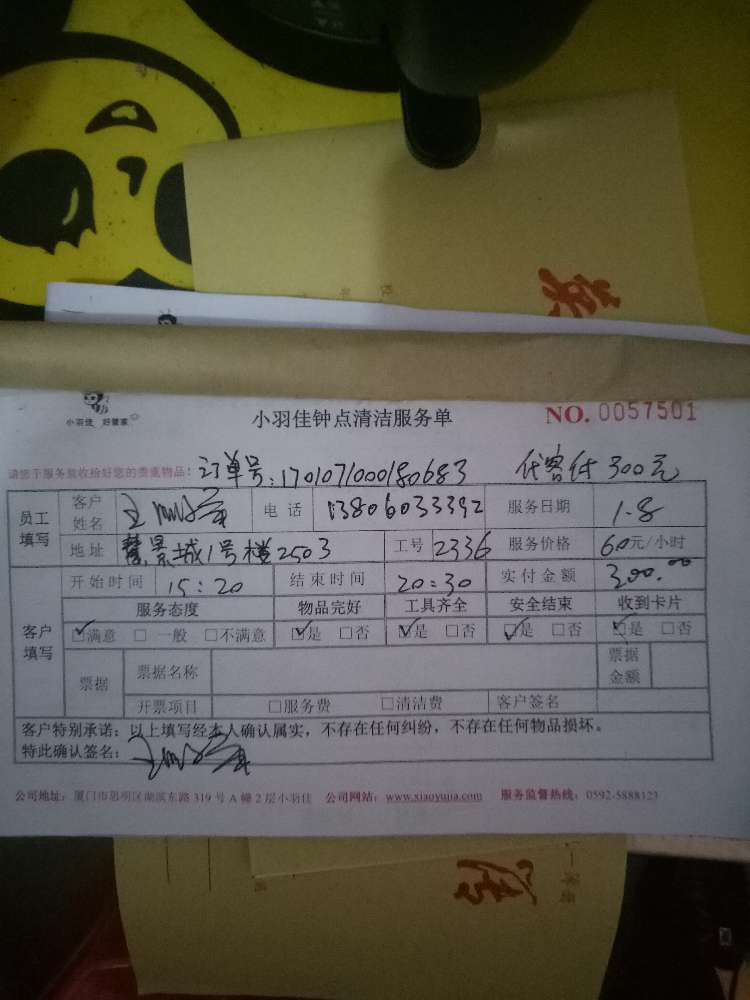 小羽佳 好管家
小羽佳钟点清洁服务单
NO. 0057501
请您于服务前收拾好您的贵重物品: 订单号:1701071000180683 代客付 300元
员工填写
客户姓名 王 电话 13806033392 服务日期 1.8
地址 慧景城1号楼2503 工号 2336 服务价格 60元/小时
客户填写
开始时间 15:20 结束时间 20:30 实付金额 300.00
服务态度 物品完好 工具齐全 安全结束 收到卡片
☑满意 □一般 □不满意 ☑是 □否 ☑是 □否 ☑是 □否 ☑是 □否
票据 票据名称 票据金额
开票项目 □服务费 □清洁费 客户签名
客户特别承诺:以上填写经本人确认属实,不存在任何纠纷,不存在任何物品损坏。
特此确认签名: 王
公司地址:厦门市思明区湖滨东路 319 号 A 幢 2 层小羽佳 公司网站:www.xiaoyujia.com 服务监督热线:0592-5888123